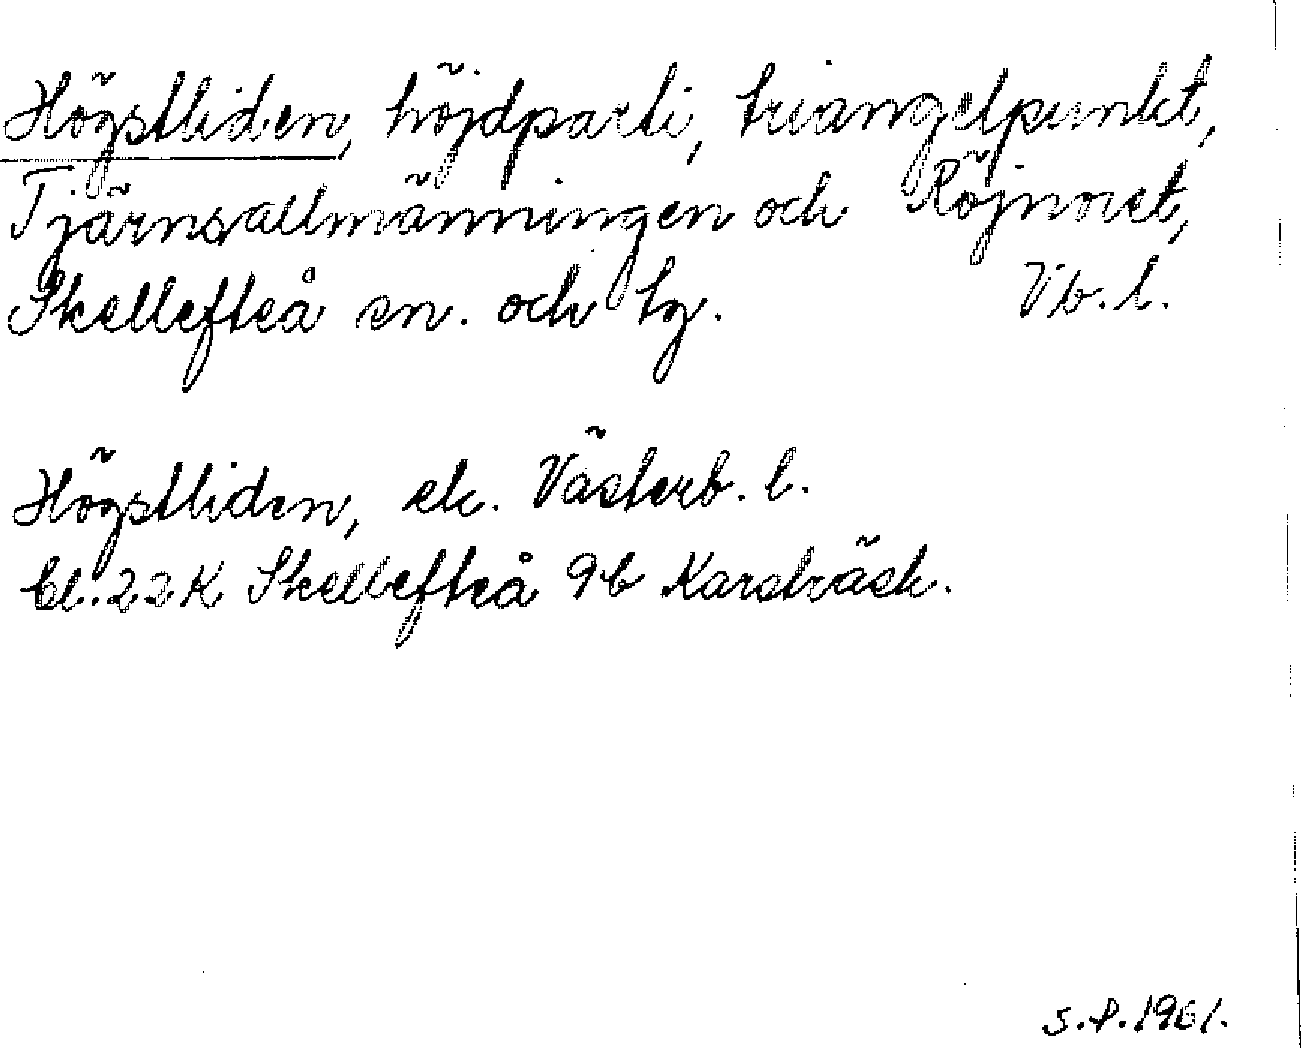 Högstliden, höjdparti, triangelpunkt,
Tjärnsallmänningen och Röjnoret,
Skellefteå sn. och tg. Vb. l.
Högstliden, ek. Västerb. l.
bl. 22K Skellefteå 9b Karsträsk.
S.P. 1961.